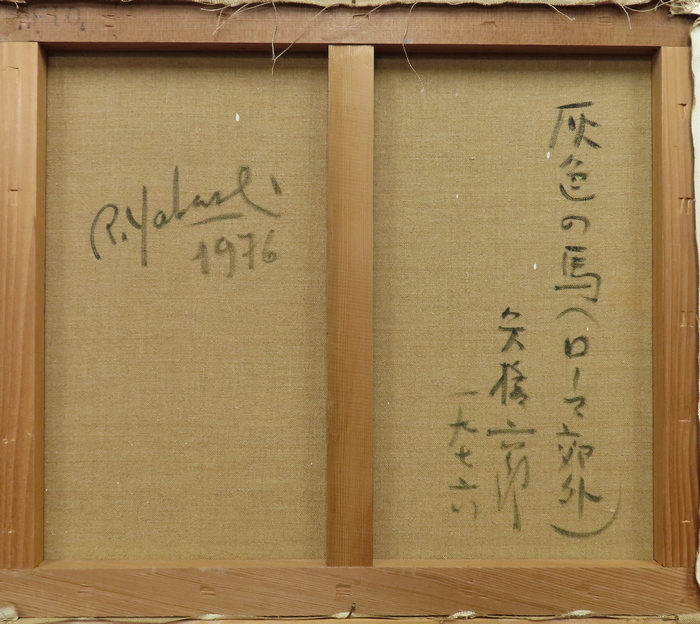 灰色の馬(ローマ郊外)
矢橋六郎
一九七六
R. Yabashi
1976